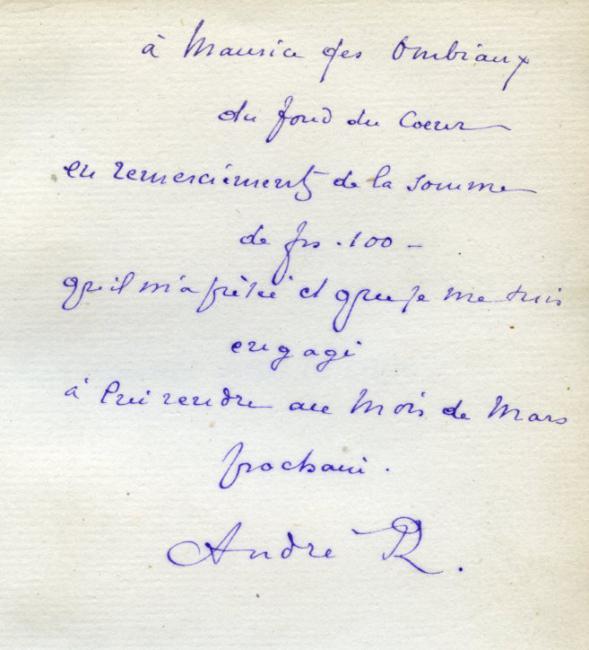 à Maurice des Ombiaux
du fond du Coeur
en remerciements de la somme
de frs. 100 –
qu'il m'a prêté et que je me suis
engagé
à lui rendre au Mois de Mars
prochain.
André R.